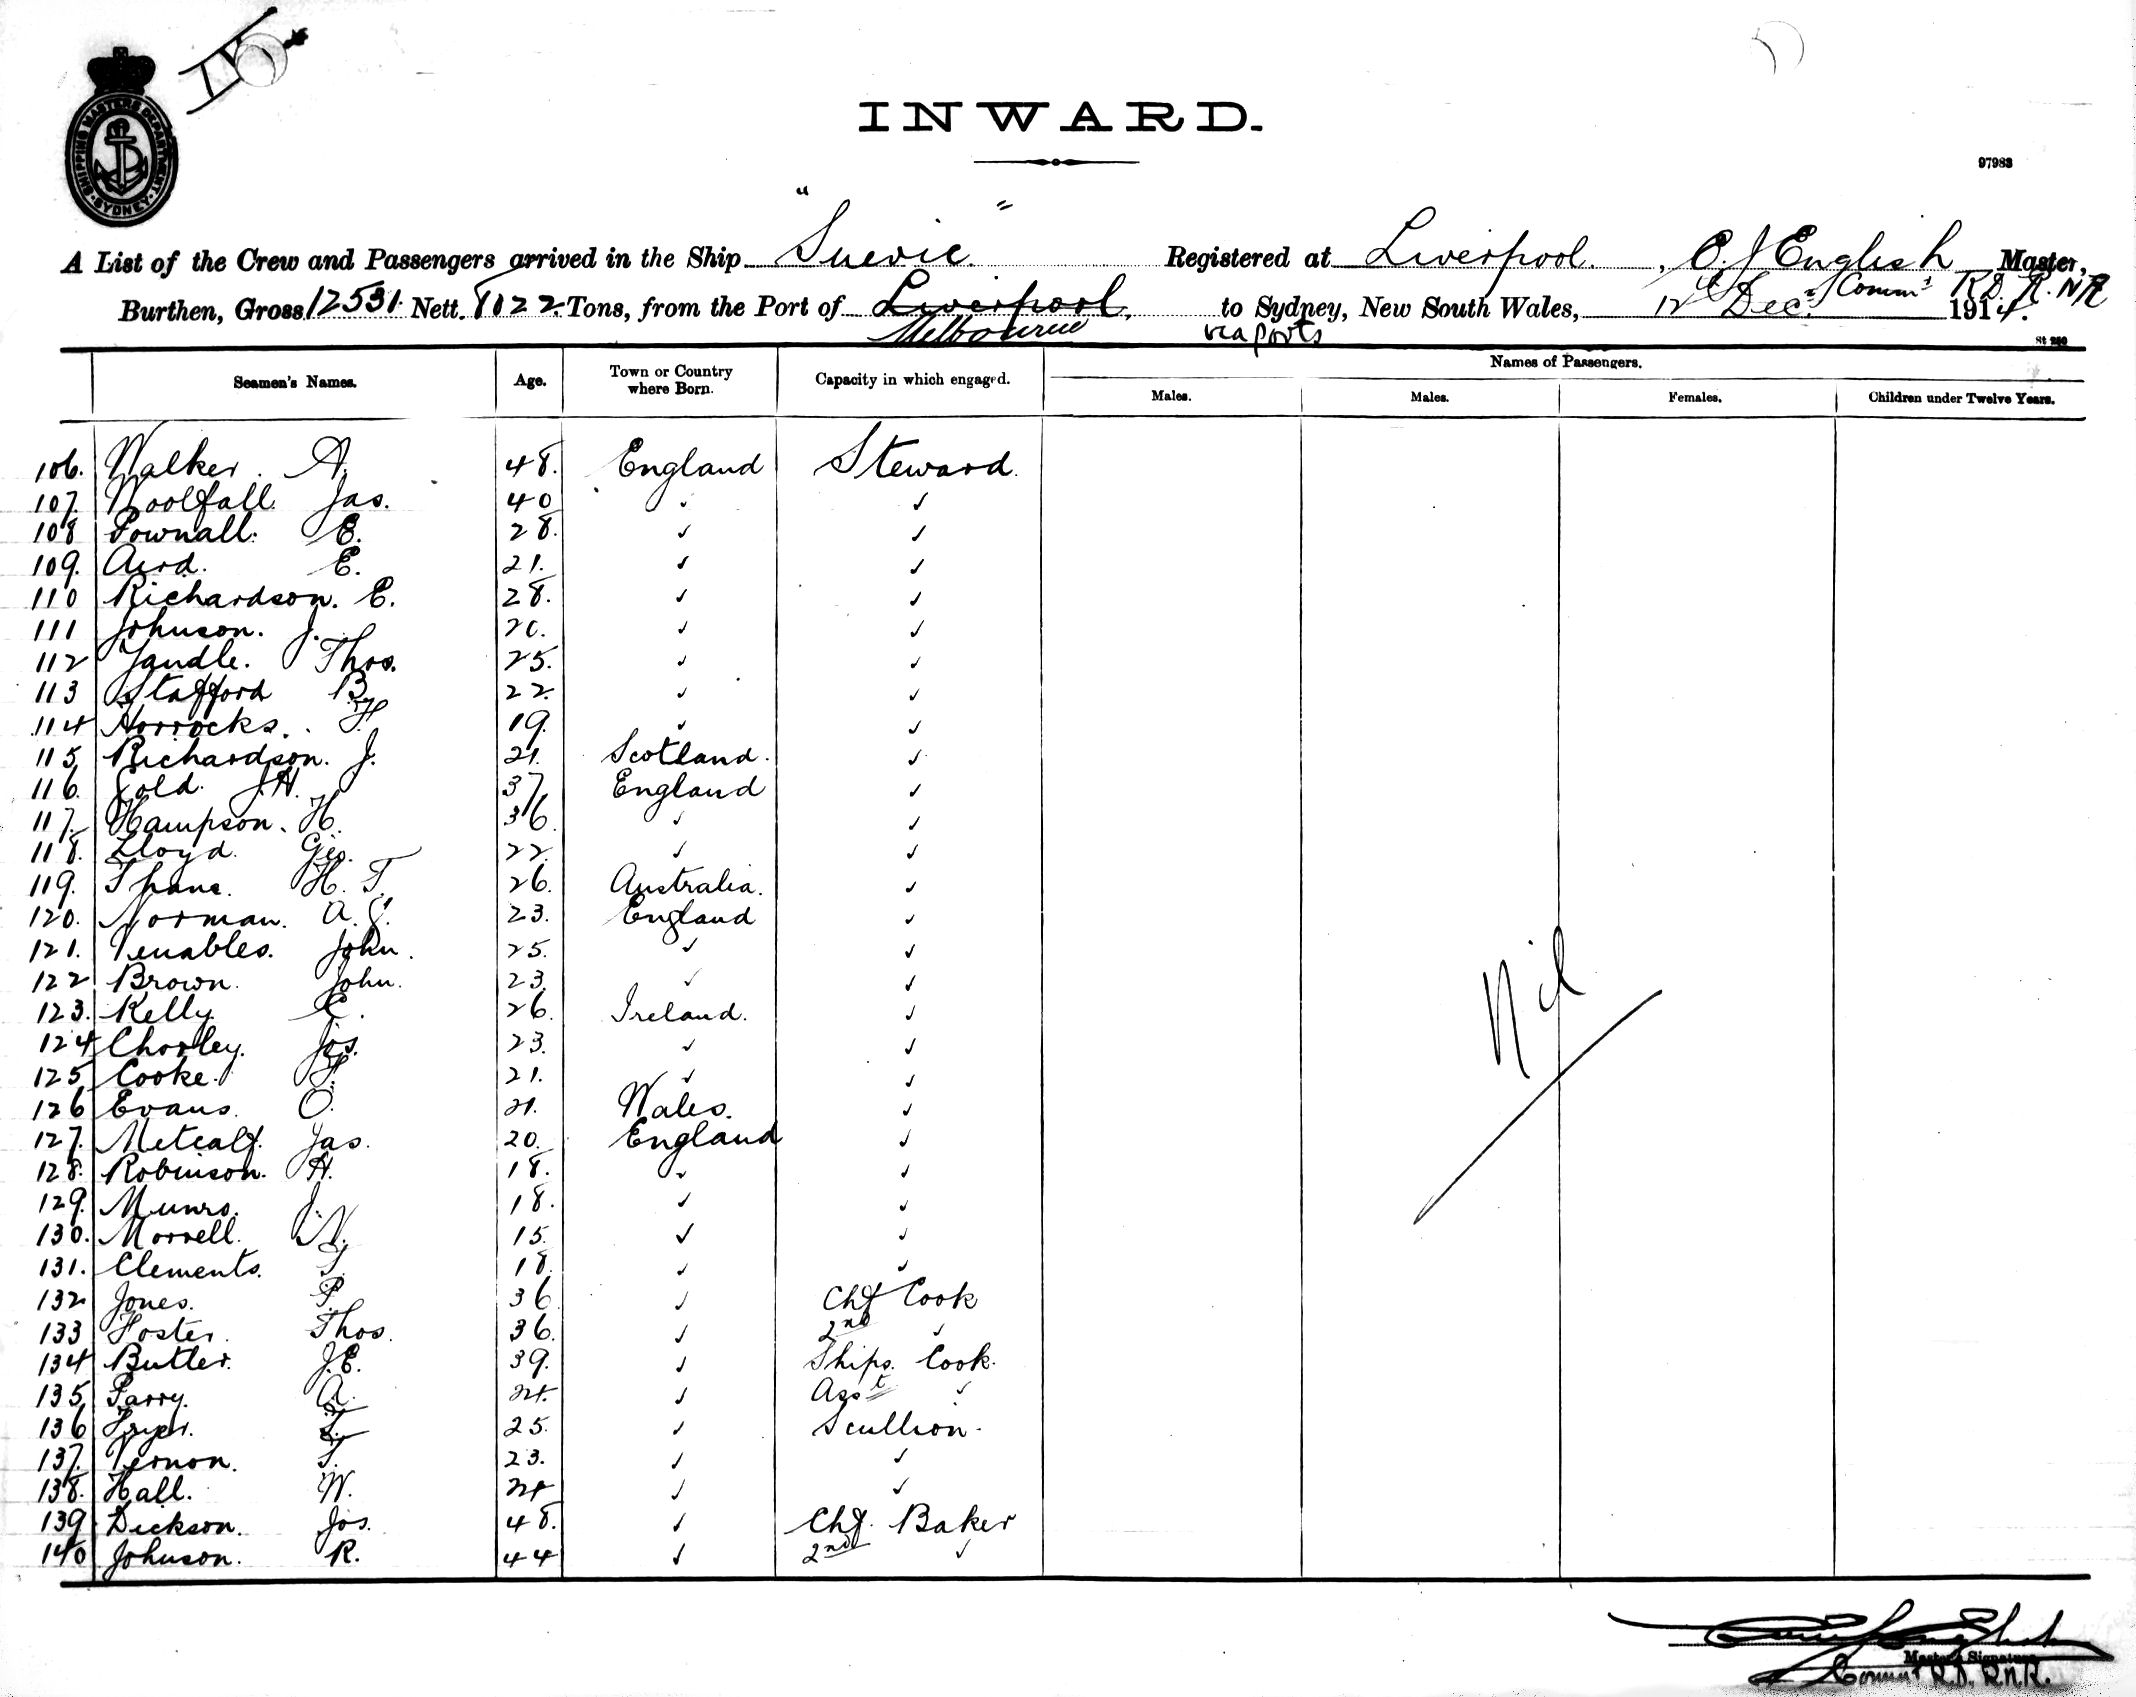 SHIPPING MASTERS DEPARTMENT. SYDNEY.
INWARD.
97983
A List of the Crew and Passengers arrived in the Ship "Suevic" Registered at Liverpool. , C. J English Master,
Comm r RD. R.NR
Burthen, Gross 12531. Nett. 8022 Tons, from the Port of Liverpool, to Sydney, New South Wales, 12th Decr 1914.
Melbourne via ports
St 260
Seamen's Names. Age. Town or Country where Born. Capacity in which engaged. Names of Passengers.
Males. Males. Females. Children under Twelve Years.
106. Walker. A. 48. England Steward.
107. Woolfall. Jas. 40 ✓ ✓
108 Pownall. E. 28. ✓ ✓
109. Aird. E. 21. ✓ ✓
110 Richardson. E. 28. ✓ ✓
111 Johnson. J. 20. ✓ ✓
112 Yandle. Thos. 25. ✓ ✓
113 Stafford By 22. ✓ ✓
114 Horrocks. F. 19. ✓ ✓
115. Richardson. J. 21. Scotland. ✓
116. Gold. J.H. 37. England ✓
117. Hampson. H. 36. ✓ ✓
118. Lloyd. Geo. 22. ✓ ✓
119. Thane. H. T. 26. Australia. ✓
120. Norman. A. J. 23. England ✓
121. Venables. John. 25. ✓ ✓
122 Brown. John. 23. ✓ ✓
123. Kelly C. 26. Ireland. ✓
124 Chorley. Jos. 23. ✓ ✓
125 Cooke. F. 21. ✓ ✓
126 Evans. O. 21. Wales. ✓
127. Metcalf. Jas. 20. England ✓
128. Robinson. H. 18. ✓ ✓
129. Munro. J. 18. ✓ ✓
130. Morrell. W. 15. ✓ ✓
131. Clements. T. 18. ✓ ✓
132 Jones. P. 36 ✓ Chf Cook
133 Foster. Thos. 36. ✓ 2nd ✓
134 Butler. J.E. 39. ✓ Ships. Cook.
135 Parry. A. 24. ✓ Asst ✓
136 Fryer. 25. ✓ Scullion.
137. Vernon. T. 23. ✓ ✓
138. Hall. W. 24 ✓ ✓
139. Dickson. Jos. 48. ✓ Chf. Baker
140 Johnson. R. 44 ✓ 2nd ✓
Nil
Master's Signature
Commr R.D. R.N.R.